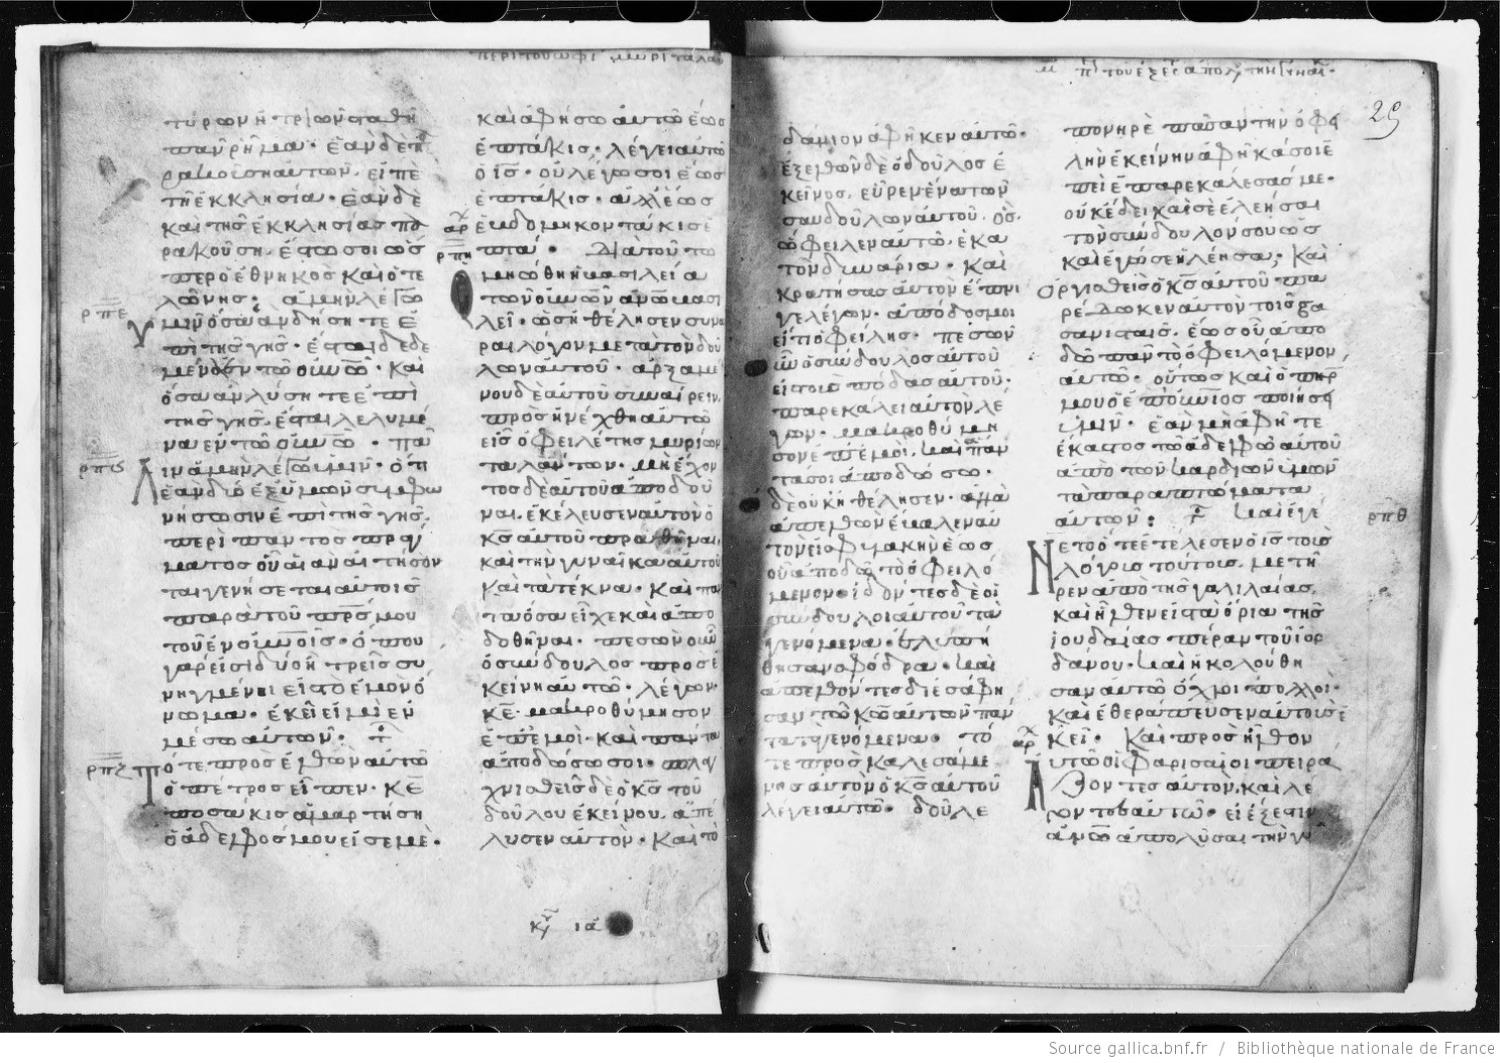 περὶ τοῦ ὀφεί μυρί ταλα
τύρων ἢ τριῶν σταθῇ
πᾶν ῥῆμα· ἐὰν δὲ π
ρακούσῃ αὐτῶν, εἰπὲ
τῇ ἐκκλησία· ἐὰν δὲ
καὶ τῆς ἐκκλησίας πα
ρακούσῃ, ἔστω σοι ὡς
περ ὁ ἐθνηκὸς καὶ ὁ τε
λώνης· ἀμὴν λέγω
ρπε
ὑμῖν ὅσα ἂν δήσητε ἐ
πὶ τῆς γῆς· ἔσται δεδε
μένα ἐν τῷ οὐνῶ· καὶ
ὅσα ἂν λύσητε ἐπὶ
τῆς γῆς, ἔσται λελυμέ
να ἐν τῷ οὐνῶ· πα
ρπς
λιν ἀμὴν λέγω ὑμῖν· ὅτι
ἐὰν δύο ἐξ ὑμῶν συμφω
νήσωσιν ἐπὶ τῆς γῆς,
περὶ παντὸς πραγ
ματος οὗ ἐὰν αἰτήσων
ται γενήσεται αὐτοῖς
παρὰ τοῦ πρς μου
τοῦ ἐν οὐνοῖς· ὅπου
γάρ εἰσι δύο ἢ τρεῖς συ
νηγμένοι εἰς τὸ ἐμὸν ὄ
νομα· ἐκεῖ εἰμὶ ἐν
μέσω αὐτῶν·
ρπζ
τότε προσελθὼν αὐτῶ
ὁ πέτρος εἶπεν· κε
ποσάκις ἁμαρτήση
ὁ ἀδελφός μου εἰς ἐμὲ·
καὶ ἀφήσω αὐτῶ ἕως
ἑπτάκις· λέγει αὐτῶ
ὁ ις· οὐ λέγω σοι ἕως
ἑπτάκις· ἀλλ' ἕως
ἑβδομηκοντάκις ἑ
ρπη
πτά· Διὰ τοῦτο
μοιώθη ἡ βασιλεία
τῶν οὐνῶν ἀνω βασι
λεῖ· ὃς ἠθέλησεν συνᾶ
ραι λόγον μετὰ τῶν δού
λων αὐτοῦ· ἀρξαμέ
νου δὲ αὐτοῦ συναίρειν,
προσηνέχθη αὐτῶ
εἷς ὀφειλέτης μυρίων
ταλάντων· μὴ ἔχον
τος δὲ αὐτοῦ ἀποδοῦ
ναι, ἐκέλευσεν αὐτὸν ὁ
κς αὐτοῦ πραθῆναι,
καὶ τὴν γυναῖκα αὐτοῦ
καὶ τὰ τέκνα· καὶ πάν
τα ὅσα εἶχε καὶ ἀπο
δοθῆναι· πεσὼν οὖν
ὁ σύνδουλος προσε
κύνει αὐτῶ· λέγων·
κε· μακροθύμησον
ἐπ' ἐμοί· καὶ πάντα
ἀποδώσω σοι· σπλαγ
χνισθεὶς δὲ ὁ κς τοῦ
δούλου ἐκείνου, ἀπέ
λυσεν αὐτὸν· καὶ τὸ
29
δάνιον ἀφῆκεν αὐτῶ·
ἐξελθὼν δὲ ὁ δοῦλος ἐ
κεῖνος, εὗρεν ἕνα τῶν
συνδούλων αὐτοῦ, ὃς
ὤφειλεν αὐτῶ, ἑκα
τὸν δινάρια· καὶ
κρατήσας αὐτὸν ἔπνι
γε λέγων· ἀπόδος μοι
εἴ τι ὀφείλης· πεσὼν
οὖν ὁ σύνδουλος αὐτοῦ
εἰς τοὺς πόδας αὐτοῦ·
παρεκάλει αὐτὸν, λέ
γων· μακροθύμη
σον ἐπ' ἐμοί, καὶ πάν
τα σοι ἀποδώσω·
δὲ οὐκ ἠθέλησεν· ἀλλὰ
ἀπελθὼν ἔβαλεν αὐ
τὸν εἰς φυλακὴν ἕως
οὗ ἀποδῶ τὸ ὀφειλό
μενον· ἰδόντες δὲ οἱ
σύνδουλοι αὐτοῦ τὰ
γενόμενα· ἐλυπή
θησαν σφόδρα· καὶ
ἀπελθόντες διεσάφη
σαν τῶ κω αὐτῶν πάν
τα τὰ γενόμενα· τό
τε προσκαλεσάμε
νος αὐτὸν ὁ κς αὐτοῦ
λέγει αὐτῶ· δοῦλε
πονηρὲ πᾶσαν τὴν ὀφει
λὴν ἐκείνην ἀφῆκά σοι ἐ
πεὶ παρεκάλεσάς με·
οὐκ ἔδει καὶ σὲ ἐλεῆσαι
τὸν σύνδουλόν σου ὡς
καὶ ἐγώ σε ἠλέησα; καὶ
ὀργισθεὶς ὁ κς αὐτοῦ πα
ρέδωκεν αὐτὸν τοῖς βα
σανισταῖς, ἕως οὗ ἀπο
δῶ πᾶν τὸ ὀφειλόμενον
αὐτῶ· οὕτως καὶ ὁ πηρ
μου ὁ ἐπουνιος ποιήσει
ὑμῖν· ἐὰν μὴ ἀφῆτε
ἕκαστος τῶ ἀδελφῶ αὐτοῦ
ἀπὸ τῶν καρδιῶν ὑμῶν
τὰ παραπτώματα
αὐτῶν· καὶ ἐγέ
ρπθ
νετο ὅτε ἐτέλεσεν ὁ ις τοὺς
λόγους τούτους, μετῆ
ρεν ἀπὸ τῆς γαλιλαίας,
καὶ ἦλθεν εἰς τὰ ὅρια τῆς
ἰουδαίας πέραν τοῦ ἰορ
δάνου· καὶ ἠκολούθη
σαν αὐτῶ ὄχλοι πολλοί·
καὶ ἐθεράπευσεν αὐτοὺς ἐ
κεῖ· Καὶ προσῆλθον
αὐτῶ οἱ φαρισαῖοι πειρά
ζοντες αὐτὸν, καὶ λέ
γοντες αὐτῶ· εἰ ἔξεστιν
ἀνω ἀπολῦσαι τὴν γυ